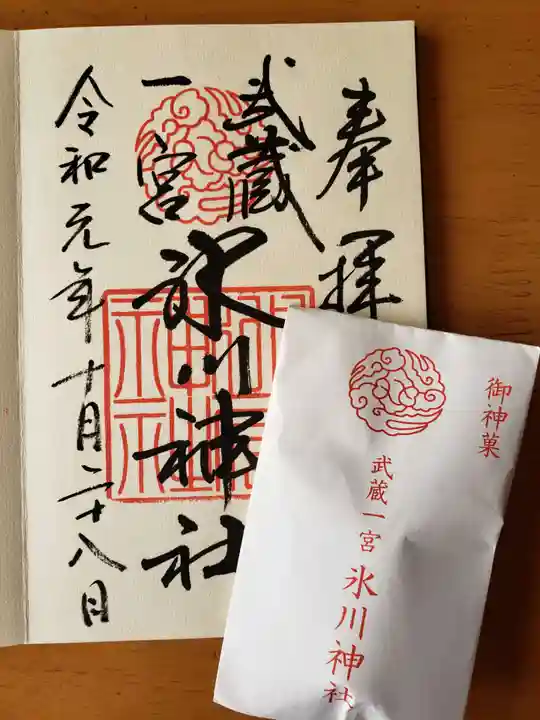 奉拝
武蔵
一宮
氷川神社
令和元年十月二十八日
御神菓
武蔵一宮
氷川神社